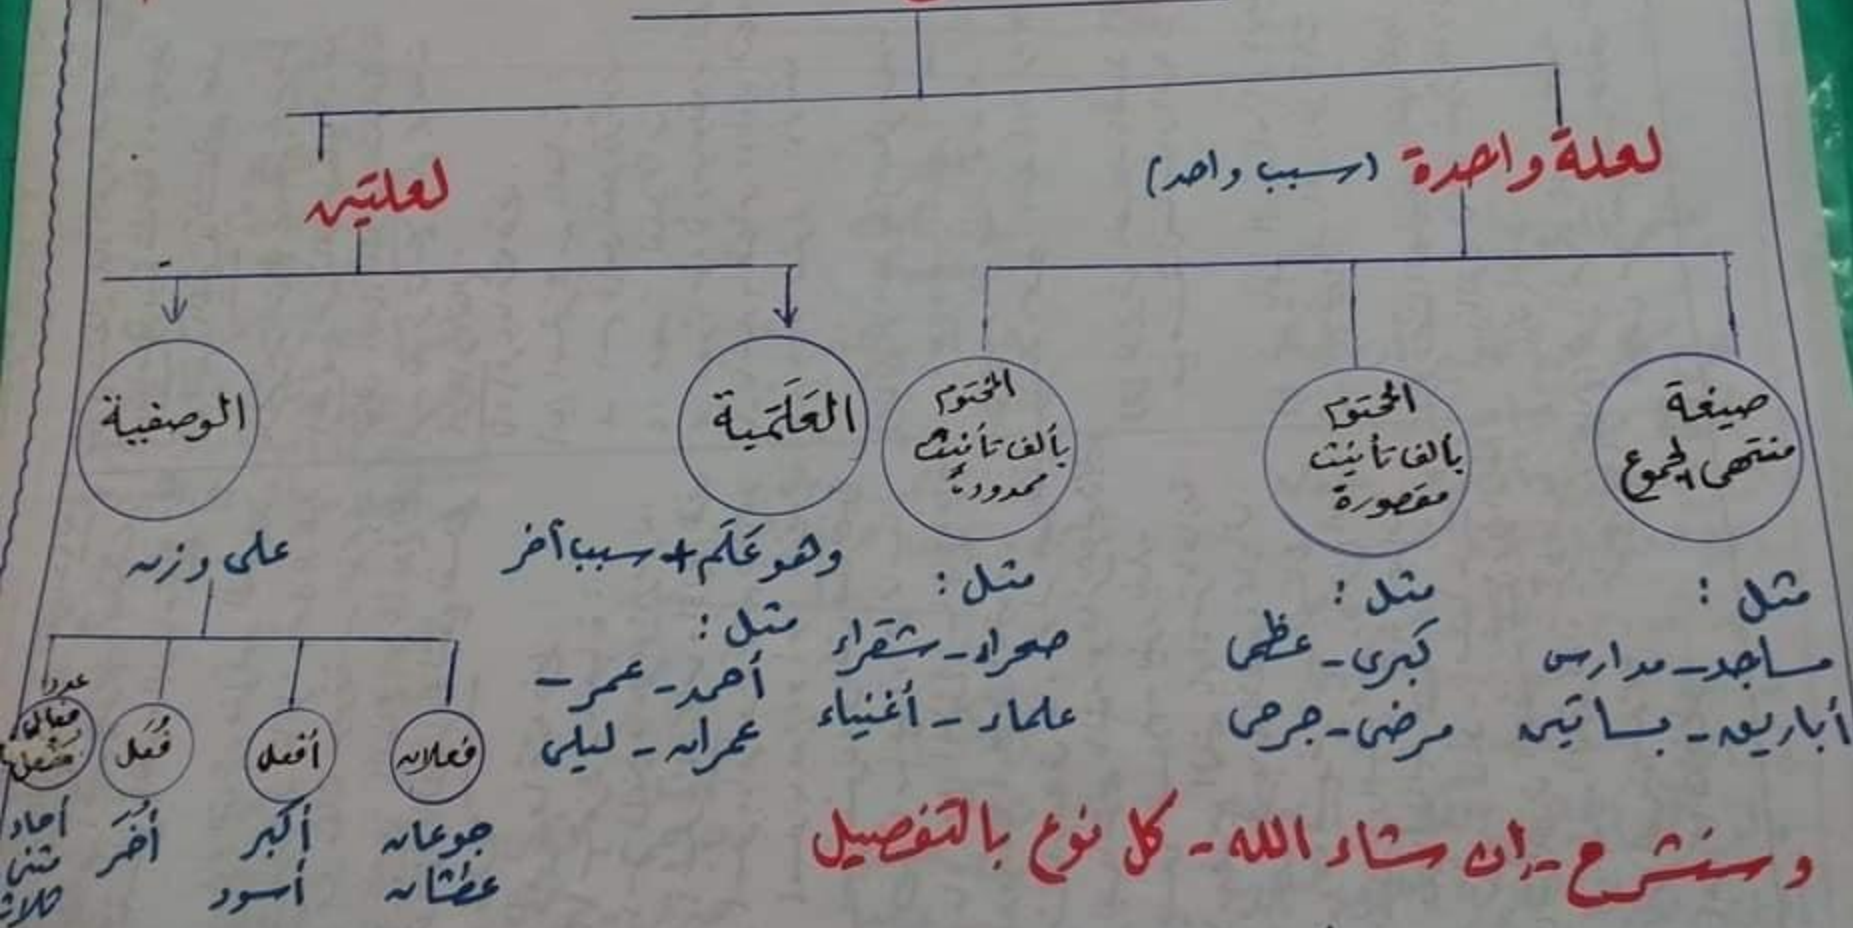 لعلة واحدة (سبب واحد)
لعلتين
صيغة
منتهى الجموع
المختوم
بألف تأنيث
مقصورة
المختوم
بألف تأنيث
ممدودة
العَلَمية
الوصفية
مثل :
مساجد - مدارس
أباريق - بساتين
مثل :
كبرى - عظمى
مرضى - جرحى
مثل :
صحراء - شقراء
علماء - أغنياء
وهو عَلَم + سبب أخر
مثل :
أحمد - عمر -
عمران - ليلى
على وزن
فعلان
جوعان
عطشان
أفعل
أكبر
أسود
فُعَل
أُخَر
عددا
فعال
مَفْعل
أحاد
مثنى
ثلاث
وسنشرح - إن شاء الله - كل نوع بالتفصيل